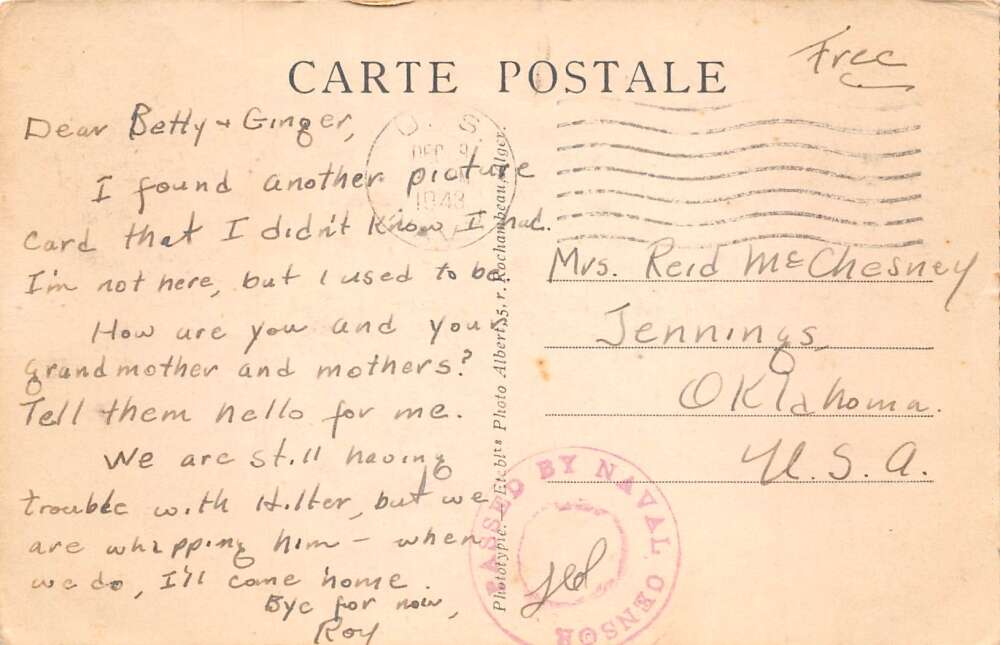 Free
CARTE POSTALE
U. S.
DEC 9
1943
Dear Betty + Ginger,
I found another picture
card that I didn't know I had.
I'm not here, but I used to be.
How are you and your
grandmother and mothers?
Tell them hello for me.
We are still having
trouble with Hilter, but we
are whipping him – when
we do, I'll come home.
Bye for now,
Roy
Phototypie.—Etcblts Photo Albert, 5, r. Rochambeau, Alger.
Mrs. Reid McChesney
Jennings,
Oklahoma.
U. S. A.
PASSED BY NAVAL CENSOR